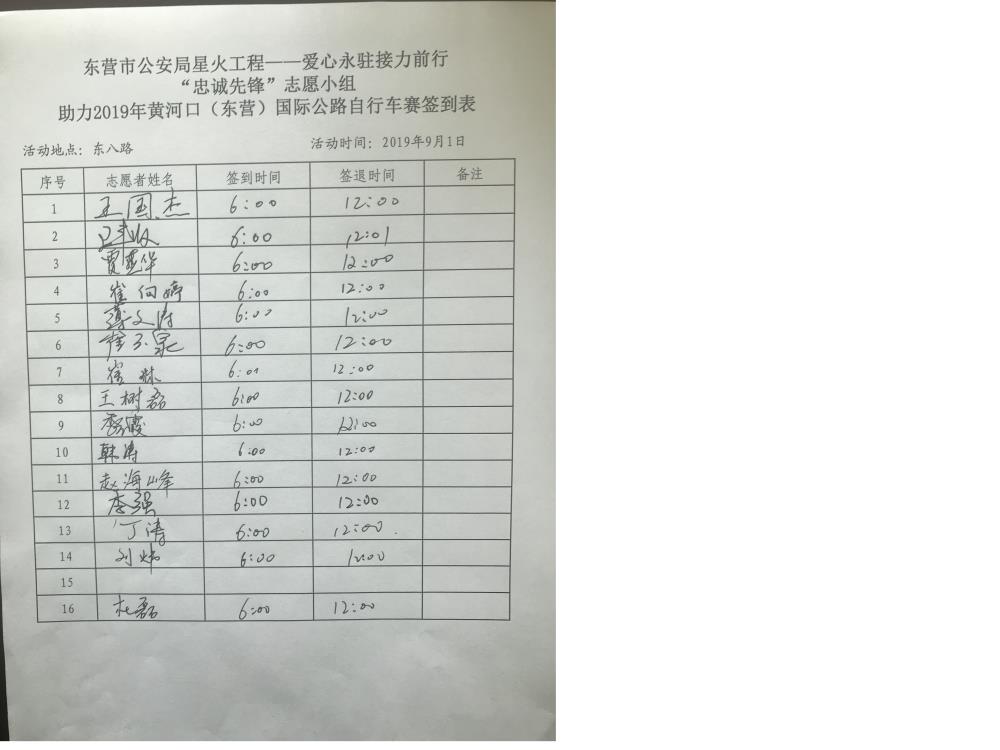 东营市公安局星火工程——爱心永驻接力前行
“忠诚先锋”志愿小组
助力2019年黄河口（东营）国际公路自行车赛签到表
活动地点：东八路 活动时间：2019年9月1日
序号 志愿者姓名 签到时间 签退时间 备注
1 王国杰 6:00 12:00
2 6:00 12:01
3 贾燕华 6:00 12:00
4 崔向婷 6:00 12:00
5 文涛 6:00 12:00
6 6:00 12:00
7 崔 6:01 12:00
8 王树磊 6:00 12:00
9 霞 6:00 12:00
10 韩涛 6:00 12:00
11 赵海峰 6:00 12:00
12 李强 6:00 12:00
13 丁涛 6:00 12:00.
14 刘炜 6:00 12:00
15
16 杜磊 6:00 12:00